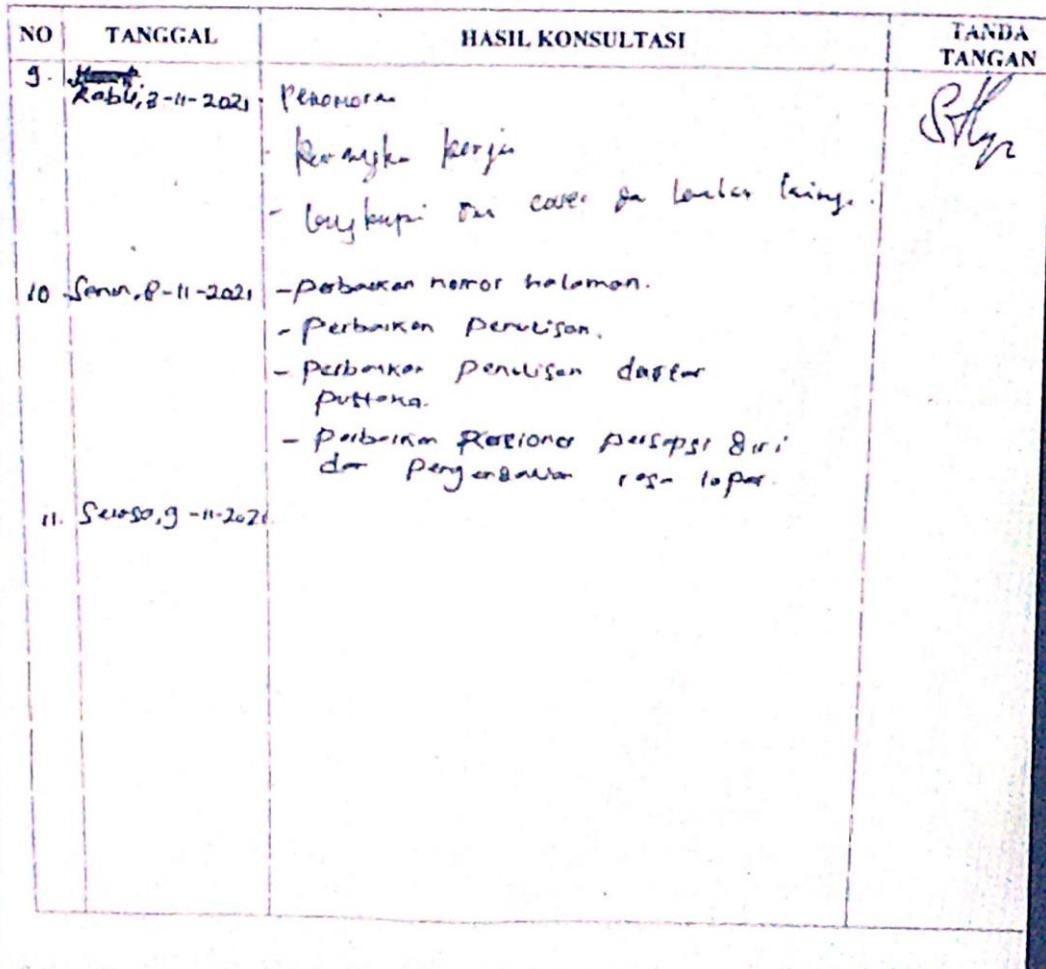 NO TANGGAL HASIL KONSULTASI TANDA TANGAN
9. Rabu, 3-11-2021 Penomoran
- Kerangka kerja
- Lengkapi dari cover dan lembar lainnya.
10 Senin, 8-11-2021 - perbaikan nomor halaman.
- Perbaikan penulisan.
- perbaikan penulisan daftar
pustaka.
- perbaikan kuesioner persepsi diri
dan pengendalian rasa lapar.
11. Selasa, 9-11-2021